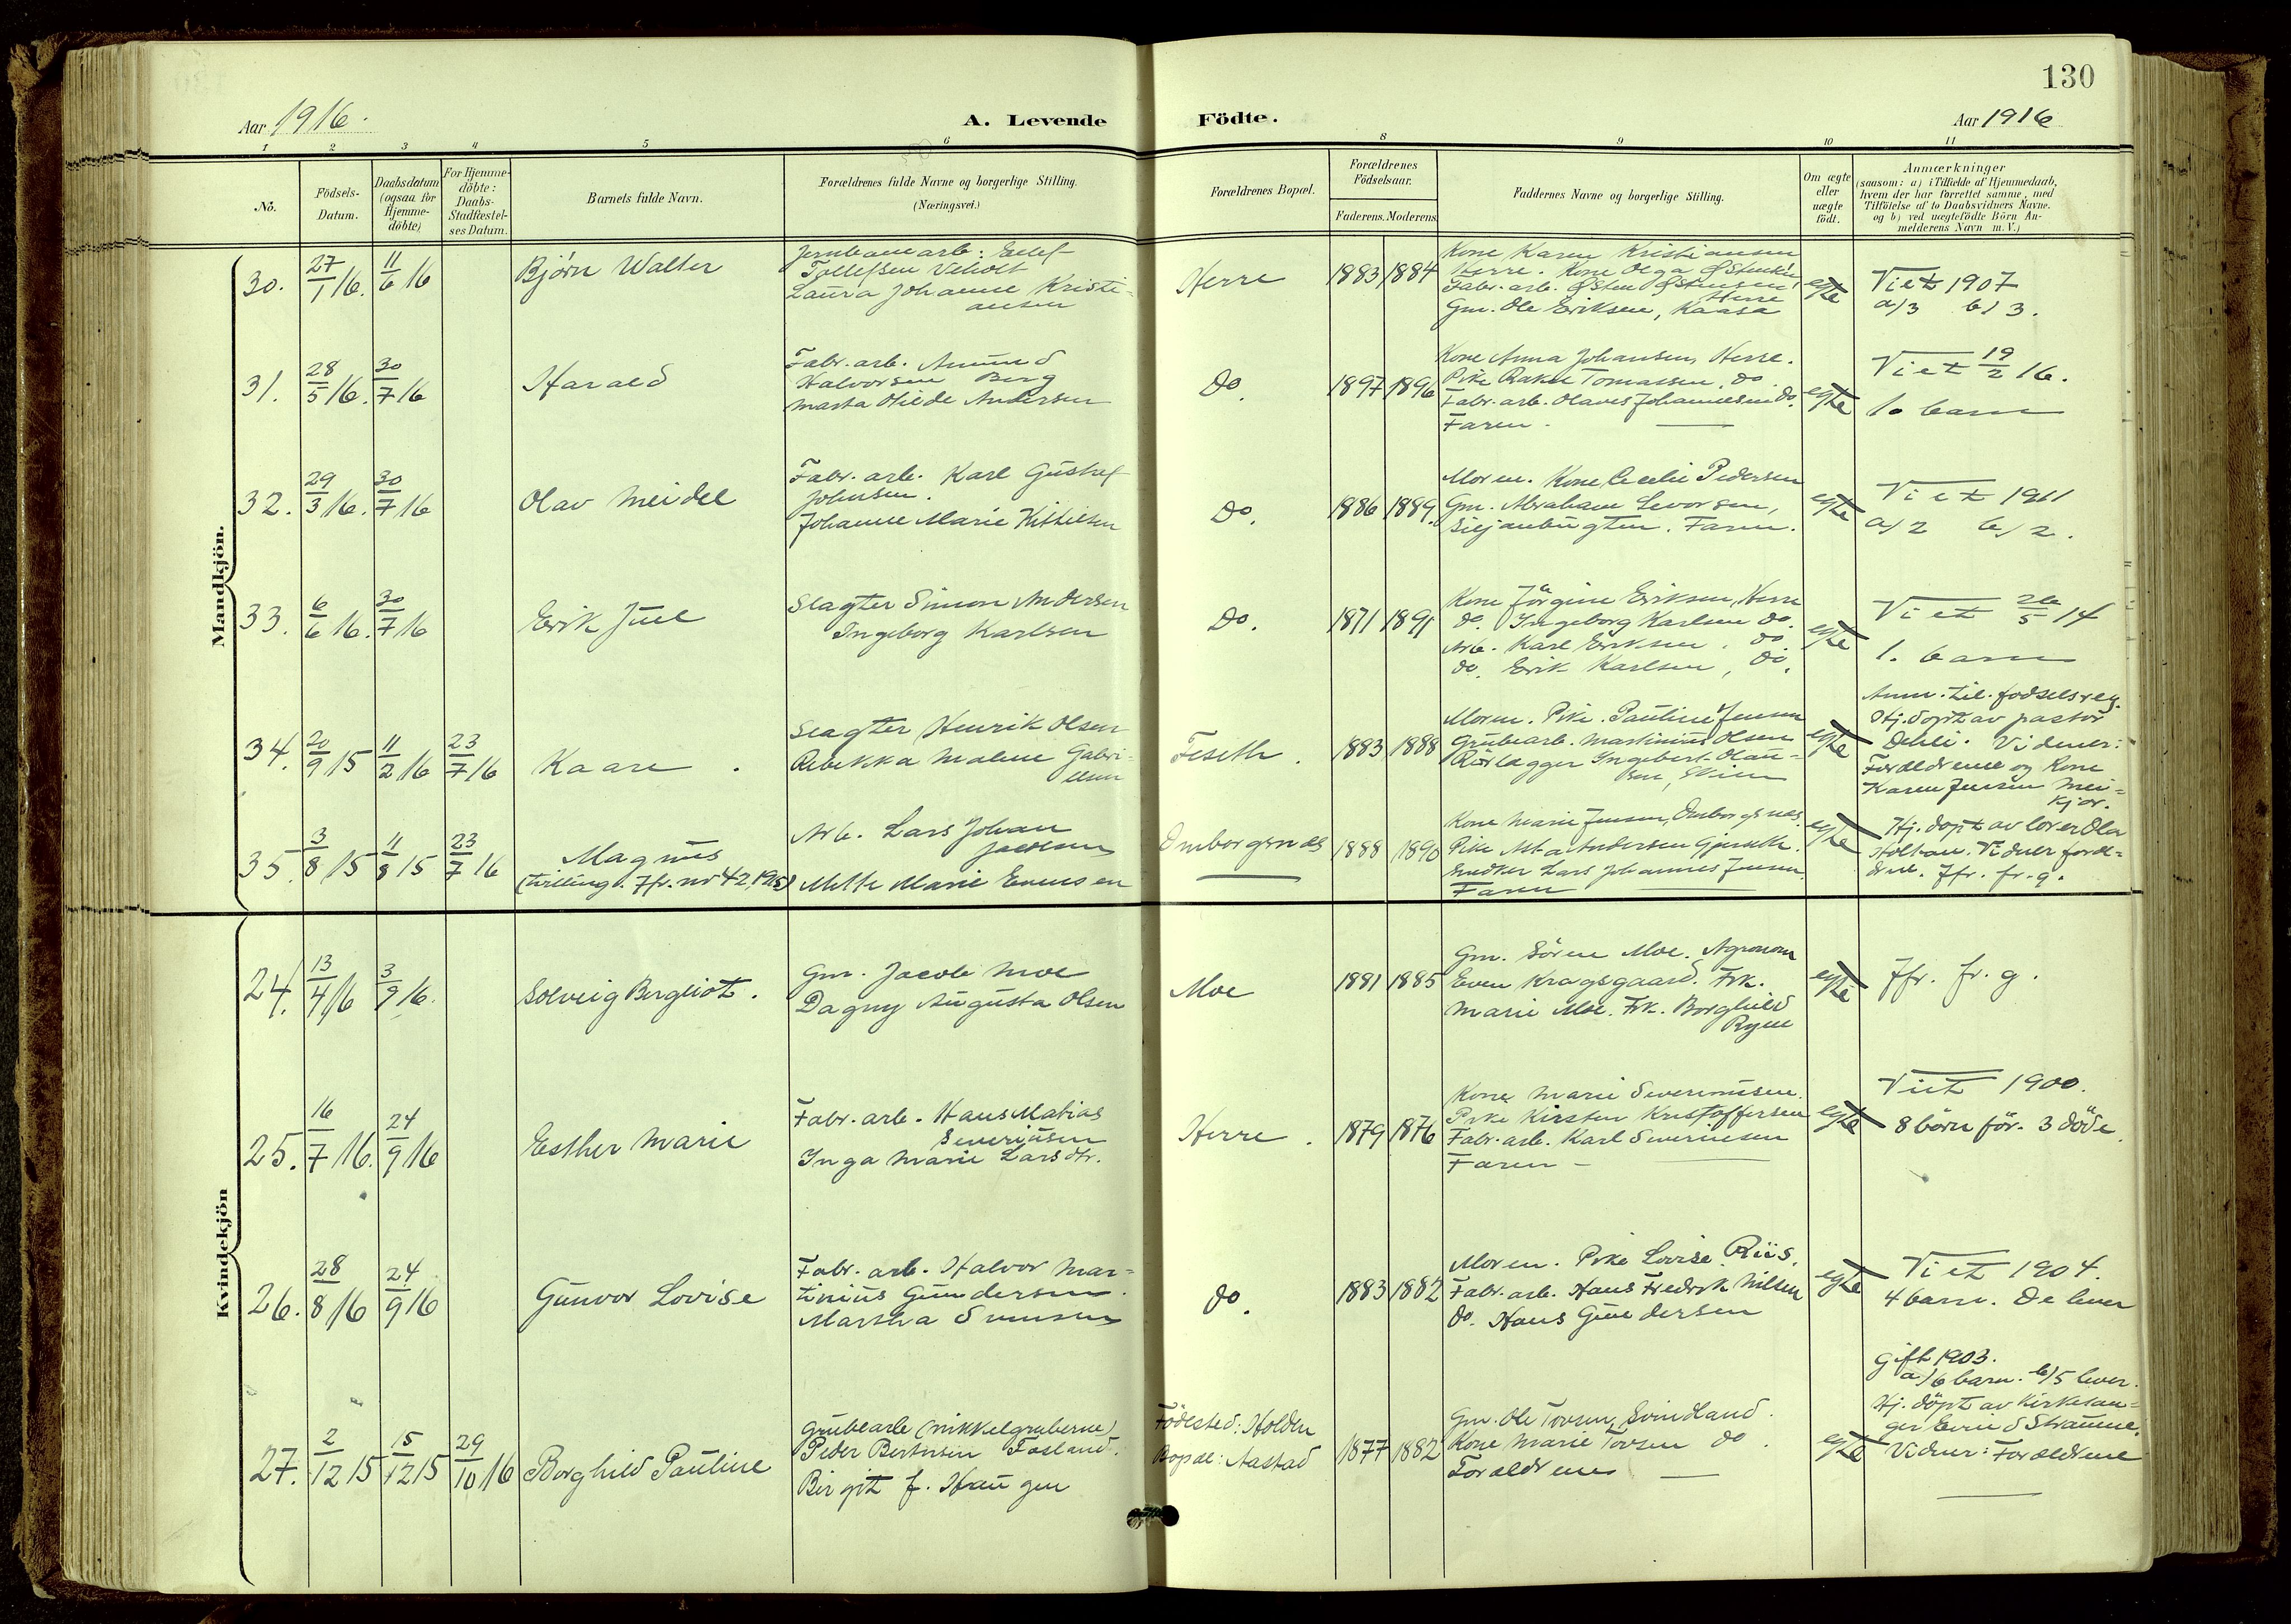 130
Aar 1916.
A. Levende Födte.
Aar 1916
1 2 3 4 5 6 8 9 10 11
No.
Födsels-
Datum.
Daabsdatum
(ogsaa for
Hjemme-
döbte)
For Hjemme-
döbte:
Daabs-
Stadfæstel-
ses Datum.
Barnets fulde Navn.
Forældrenes fulde Navne og borgerlige Stilling.
(Næringsvei.)
Forældrenes Bopæl.
Forældrenes
Födselsaar.
Faderens. Moderens.
Faddernes Navne og borgerlige Stilling.
Om ægte
eller
uægte
födt.
Anmærkninger
(saasom: a) i Tilfælde af Hjemmedaab,
hvem der har forrettet samme, med
Tilföielse af to Daabsvidners Navne.
og b) ved uægtefödte Börn An-
melderens Navn m.V.)
Mandkjön.
30. 27/1 16. 11/6 16
Bjørn Walter
Jernbanearb:
Tollefsen
Laura Johanne Kristi-
ansen
Herre
1883 1884
Kone Karen Kristiansen
Herre. Kone Olga Østensen
Fabr. arb. Østen Østensen,
Herre
Gm. Ole Eriksen, Kaasa
egte
Viet 1907
a/3 b/3.
31. 28/5 16. 30/7 16
Harald
Fabr. arb. Amund
Halvorsen Berg
Marta Otilde Andersen
Do.
1897 1896
Kone Anna Johansen, Herre.
Pike Rakel Tomassen, do.
Fabr. arb. Olaves Johannesen do.
Faren.
egte
Viet 19/2 16.
1o barn
32. 29/3 16. 30/7 16
Olav Meidel
Fabr. arb. Karl Gustaf
Johnsen.
Johanne Marie Kittilsen
Do.
1886 1889.
Moren. Kone Cecelie Pedersen
Gm. Abraham Levorsen,
Siljanbugten. Faren.
egte
Viet 1911
a/2 b/2.
33. 6/6 16. 30/7 16
Erik Juel
Slagter Simon Andersen
Ingeborg Karlsen
Do.
1871 1891
Kone Jörgine Eriksen, Herre
do. Ingeborg Karlsen do.
Arb. Karl Eriksen. do.
do. Erik Karlsen, do.
egte
Viet 26/5 14
1. barn
34. 20/9 15 11/2 16 23/7 16
Kaare.
Slagter Henrik Olsen
Rebekka Malene Gabri-
elsen
Feseth.
1883 1888
Moren. Pike. Pauline Jensen
Grubearb. Martinius Olsen
Rörlægger Ingebert Olau-
sen, Skien
egte
Anm. til fodselsreg.
Hj. dopt av pastor
Dehli. Vidner:
Forældrene og Kone
Karen Jensen Mei-
kjær.
35. 3/8 15 11/8 15 23/7 16
Magnus
(tvilling. Jfr. nr 42, 1915)
Arb. Lars Johan
Jacobsen
Mette Marie Evensen
Omborgsnes
1888 1890
Kone Marie Jensen, Omborgsnes.
Pike Andersen
Lars Johannes Jensen.
Faren
egte
Hj. dopt av lærer Ola
Holtan. Vidner foræl-
drene. Jfr. fr. g.
Kvindekjön
24. 13/4 16 3/9 16.
Solveig Bergliot.
Gm. Jacob Moe
Dagny Augusta Olsen
Moe
1881 1885
Gm. Sören Moe. Agronom
Even Kragsgaard. Frk.
Marie Moe. Frk. Borghild
egte
Jfr. fr. g.
25. 16/7 16. 24/9 16
Esther Marie
Fabr. arb. Hans Matias
Severinsen
Inga Marie Larsdtr.
Herre.
1879 1876
Kone Marie Severinsen.
Pike Kirsten Kristoffersen
Fabr. arb. Karl Severinsen
Faren
egte
Viet 1900.
8 börn för. 3 döde.
26. 28/8 16 24/9 16
Gunvor Lovise
Fabr. arb. Halvor Mar-
tinius Gundersen.
Martha Svensen
do.
1883 1882
Moren. Pike Lovise Riis.
Fabr. arb. Hans Fredrik Nilsen
do. Hans Gundersen
egte
Viet 1904.
4 barn. De lever
27. 2/12 15 15/12 15 29/10 16
Borghild Pauline
Grubearb (nikkelgruberne)
Peder Berntsen Fosland.
Birgit f. Haugen
Födested: Holden
Bopæl: Aastad
1877 1882
Gm. Ole Tovsen, Svindland.
Kone Marie Tovsen do.
Forældrene
egte
Gift 1903.
a/6 barn. b/5 lever.
Hj. döpt av Kirkesan-
ger Eivind Straume.
Vidner: Forældrene